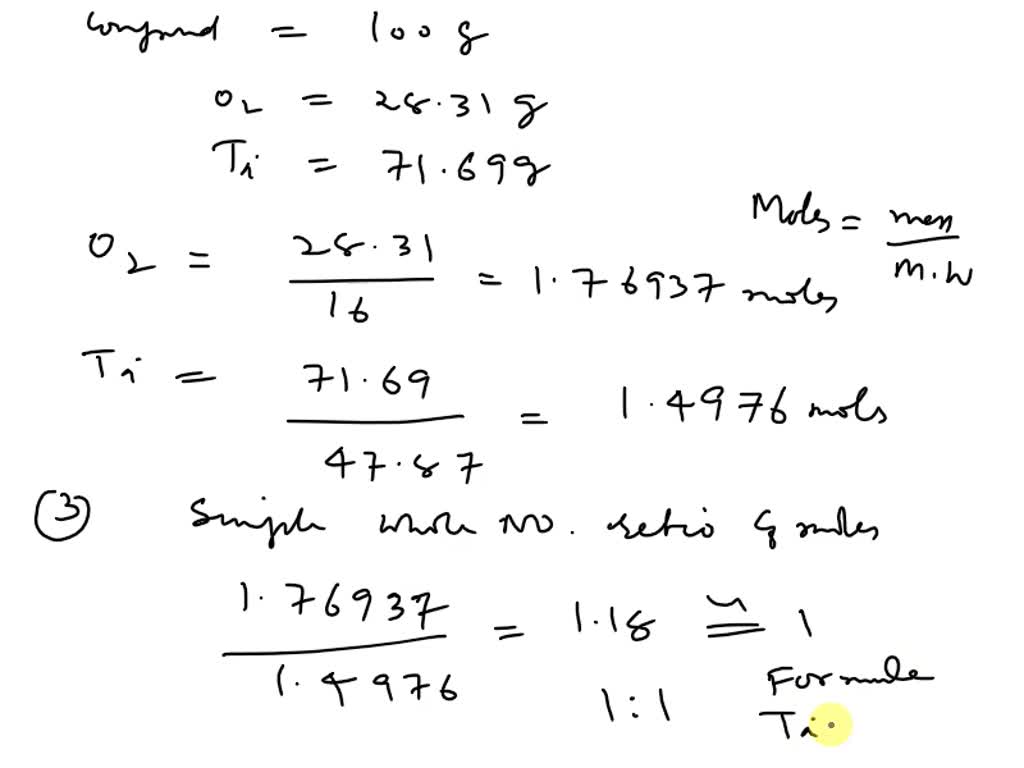 Compound = 100 g
O2 = 28.31 g
Ti = 71.69g
Moles = mass / M.W
O2 = 28.31 / 16 = 1.76937 moles
Ti = 71.69 / 47.87 = 1.4976 mols
③ Simple whole NO. ratio of moles
1.76937 / 1.4976 = 1.18 ≌ 1
1:1 Formula
Ti